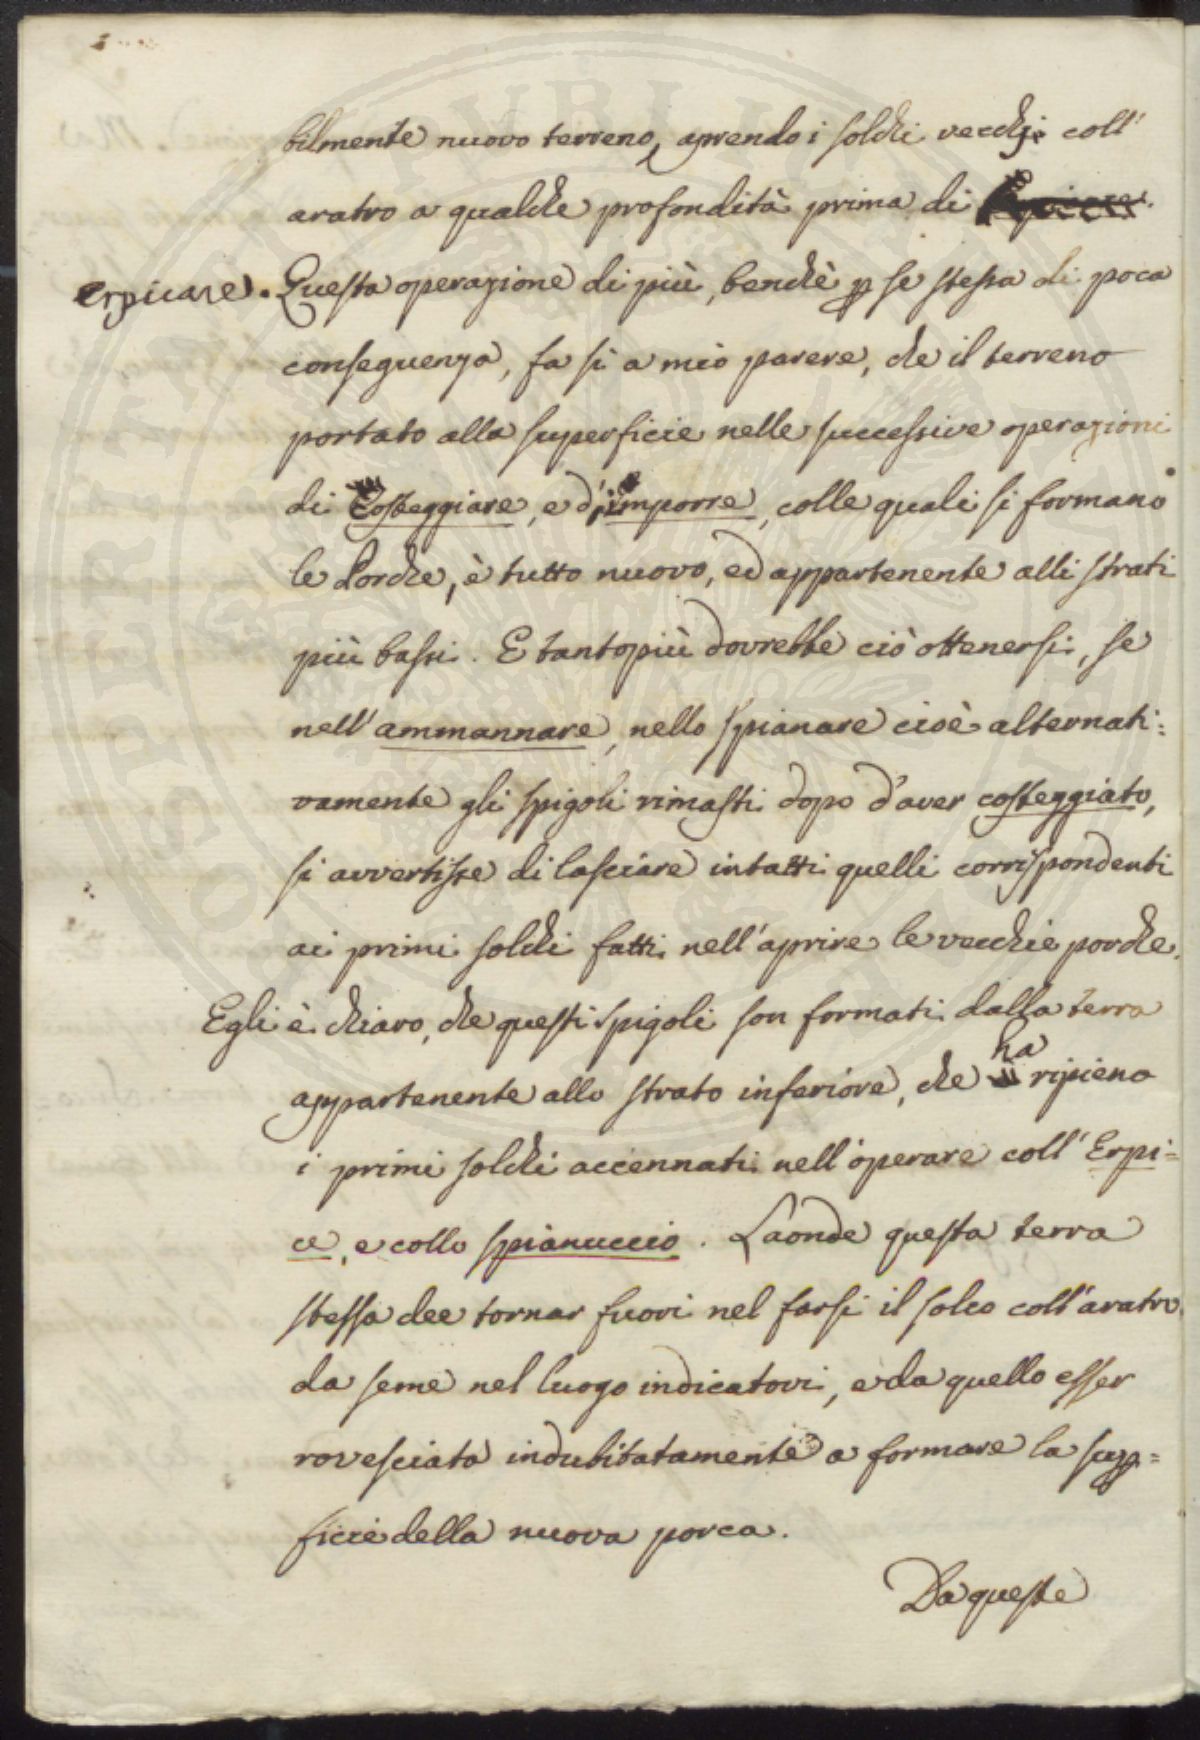 bilmente nuovo terreno, aprendo i solchi vecchj coll'
aratro a qualche profondità prima di
erpicare. Questa operazione di più, benchè p se stessa di poca
conseguenza, fa sì a mio parere, che il terreno
portato alla superficie nelle successive operazioni
di Costeggiare, e d'imporre, colle quali si formano
le Porche, è tutto nuovo, ed appartenente alli strati
più bassi. E tantopiù dovrebbe ciò ottenersi, se
nell'ammannare, nello spianare cioè alternati=
vamente gli spigoli rimasti dopo d'aver costeggiato,
si avvertisse di lasciare intatti quelli corrispondenti
ai primi solchi fatti nell'aprire le vecchie porche.
Egli è chiaro, che questi spigoli son formati dalla terra
appartenente allo strato inferiore, che ha ripieno
i primi solchi accennati nell'operare coll'Erpi=
ce, e collo spianuccio. Laonde questa terra
stessa dee tornar fuori nel farsi il solco coll'aratro
da seme nel luogo indicatovi, e da quello esser
rovesciata indubitatamente a formare la sup=
ficie della nuova porca.
Da queste